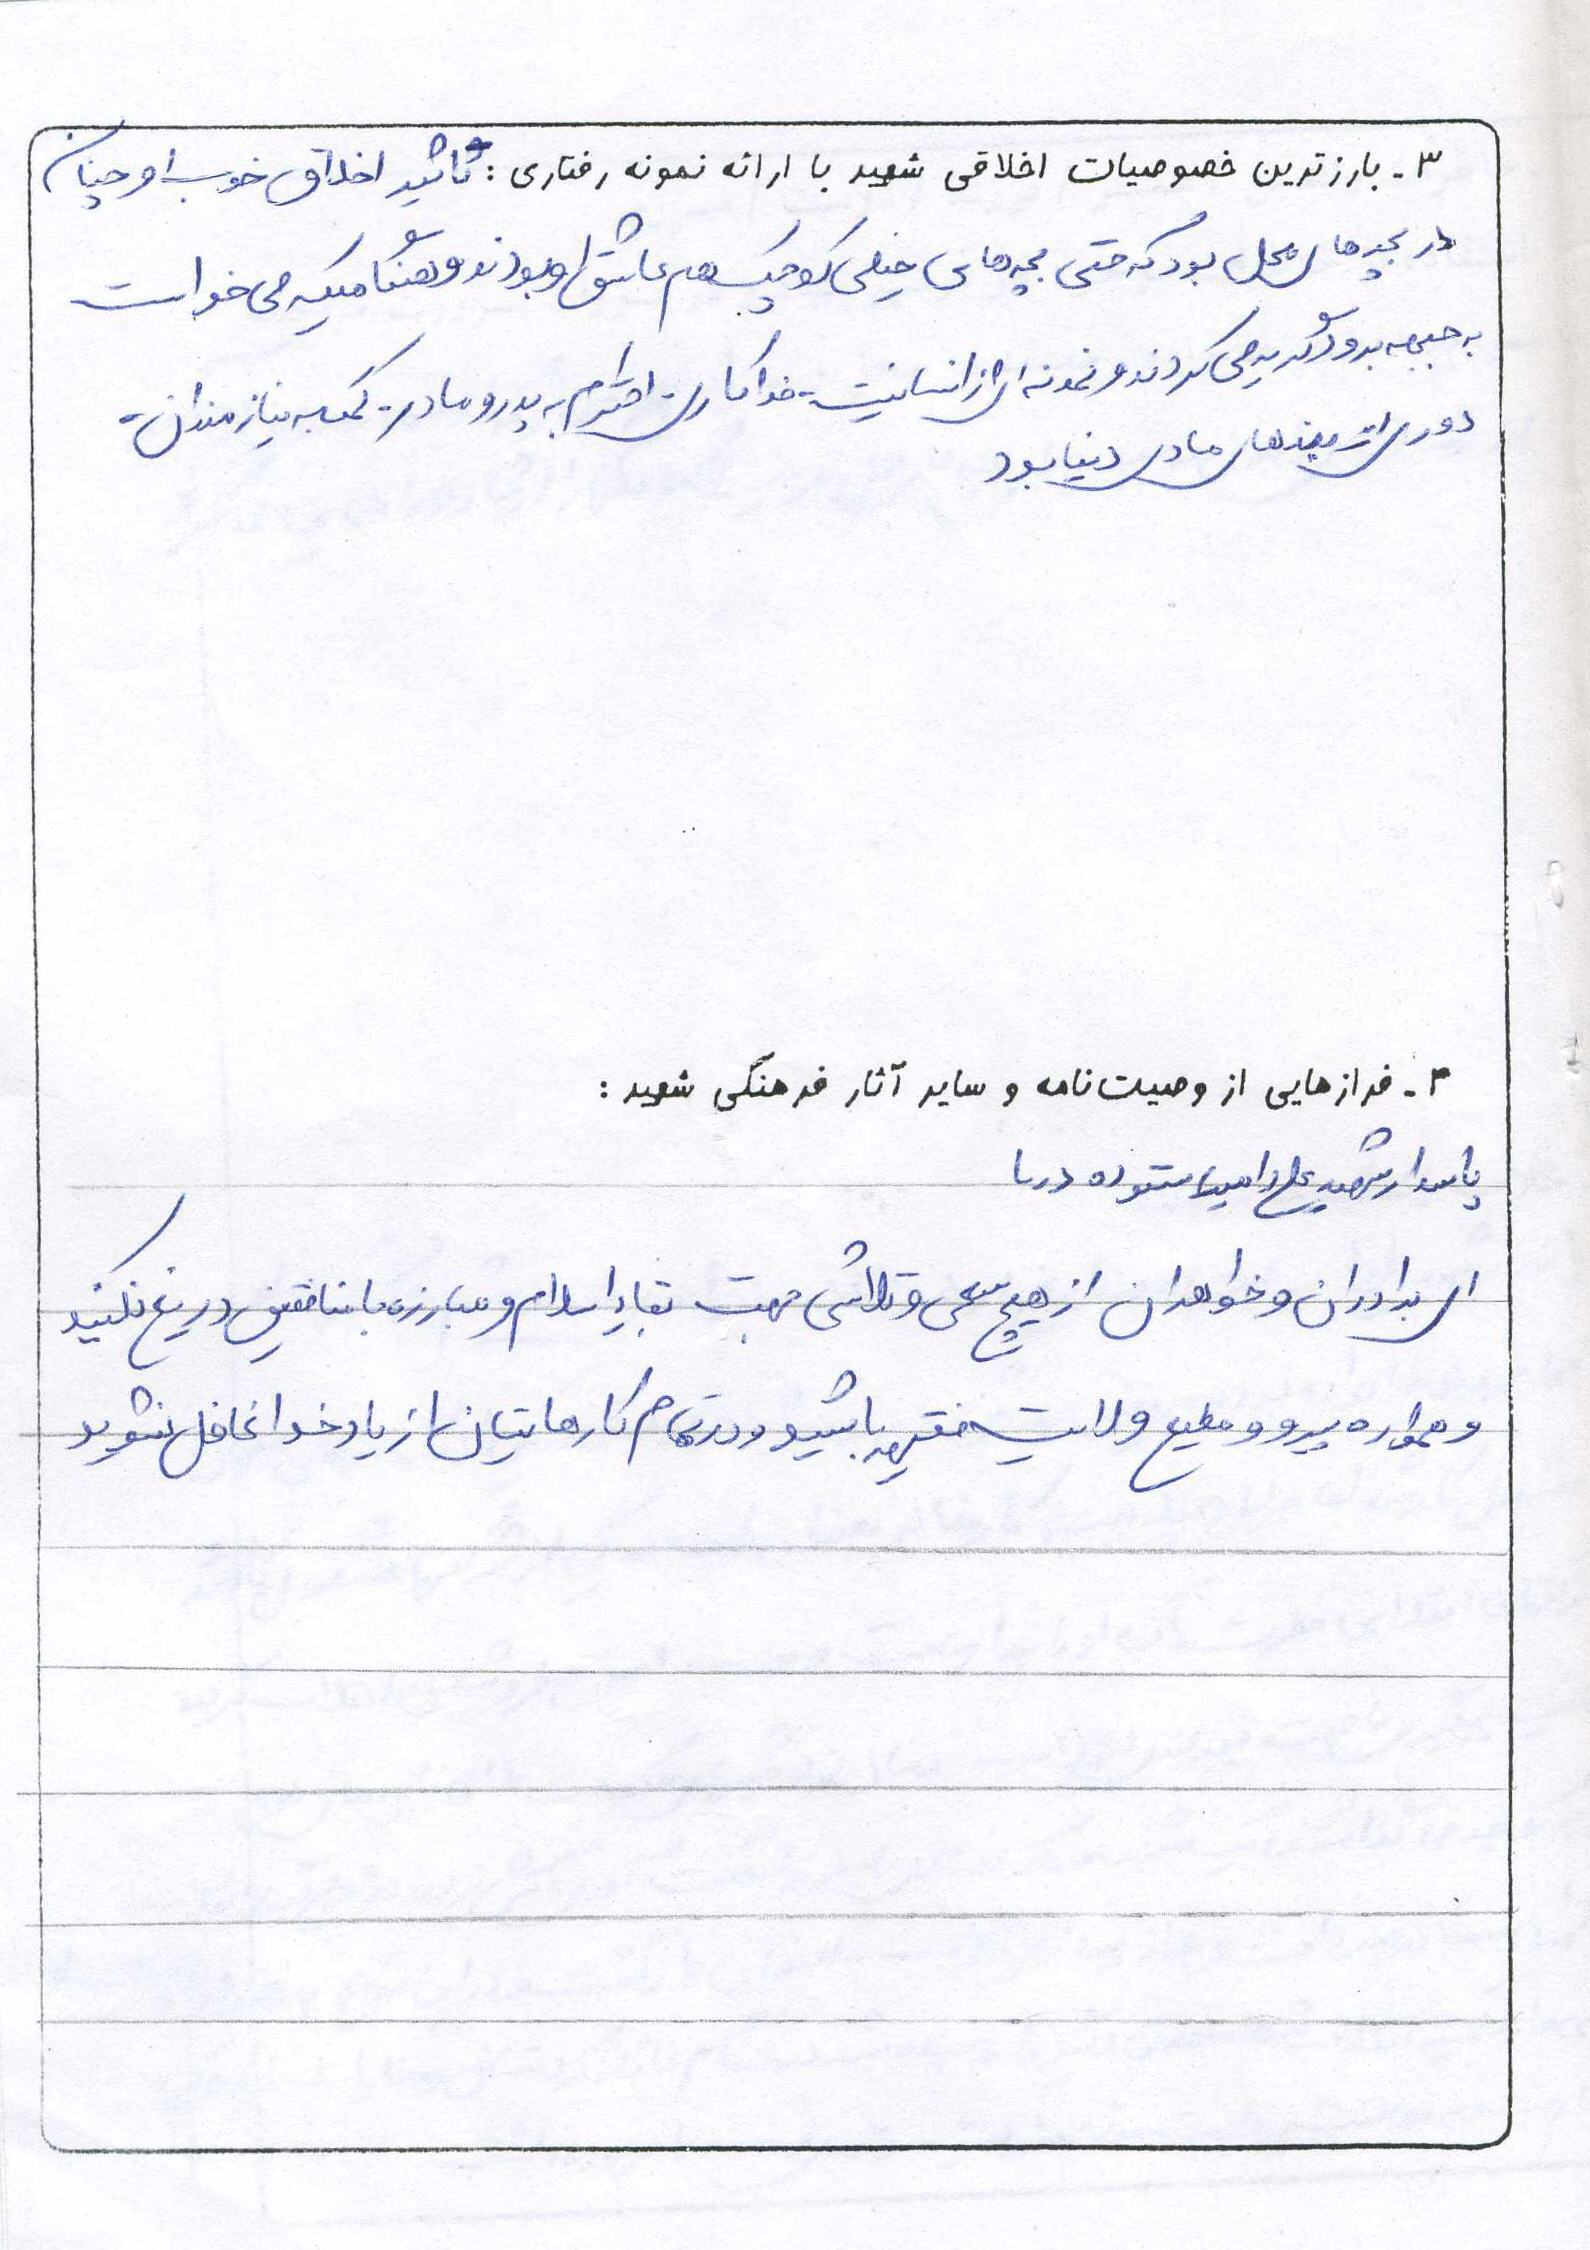 ۳- بارزترین خصوصیات اخلاقی شهید با ارائه نمونه رفتاری : تاثیر اخلاق خوب او چنان
در بچه های محل بود که حتی بچه های خیلی کوچک هم عاشق او بودند و هنگامیکه می خواست
به جبهه برود گریه می کردند و نمونه ای از انسانیت - فداکاری - احترام به پدر و مادر - کمک به نیازمندان -
دوری از بندهای مادی دنیا بود
۴- فرازهایی از وصیت‌نامه و سایر آثار فرهنگی شهید :
پاسدار شهید ستوده دریا
ای برادران و خواهران از هیچ سعی و تلاشی جهت بقای اسلام و مبارزه با منافقین دریغ نکنید
و همواره پیرو و مطیع ولایت فقیه باشید و در تمام کارهایتان از یاد خدا غافل نشوید